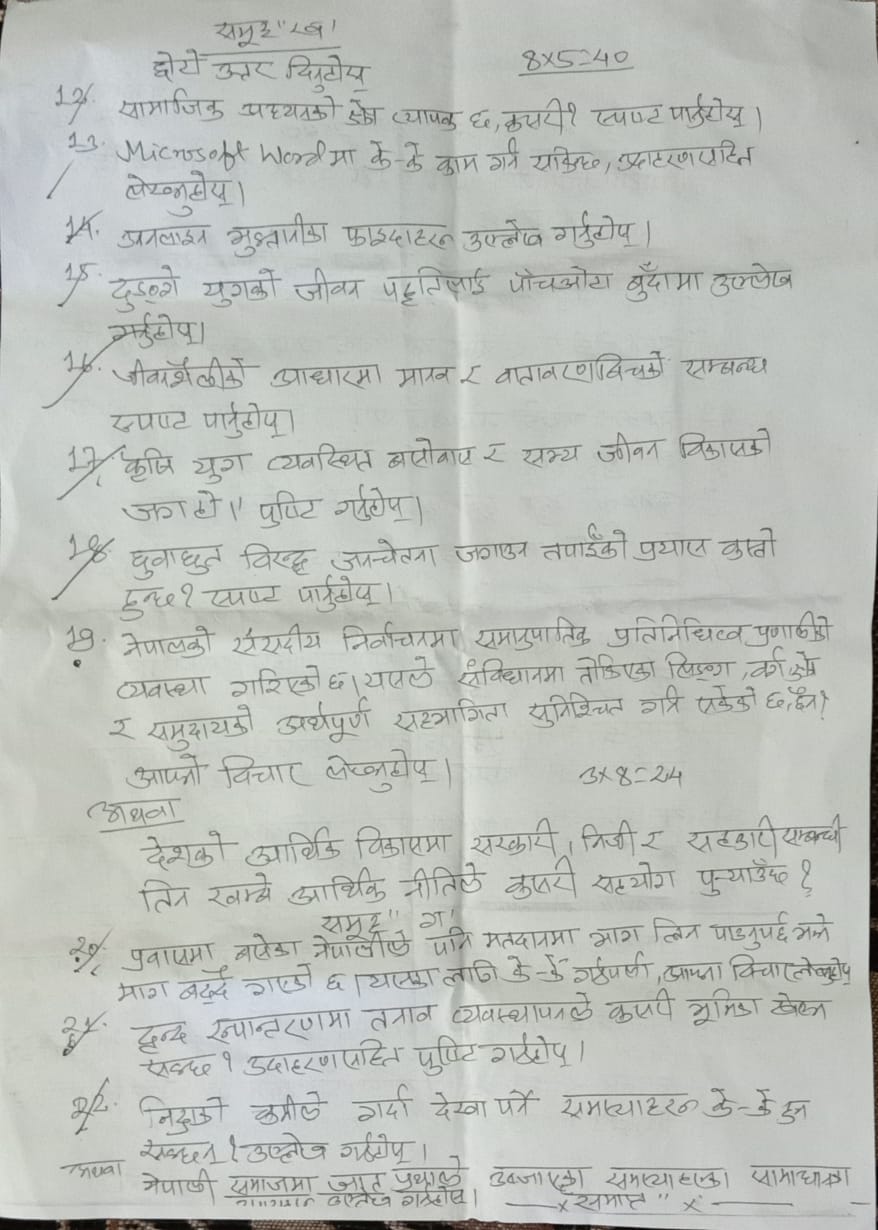 समूह "ख"
छोटो उत्तर दिनुहोस् 8×5=40
12. सामाजिक अध्ययनको क्षेत्र व्यापक छ, कसरी? स्पष्ट पार्नुहोस्।
13. Microsoft Word मा के-के काम गर्न सकिन्छ, उदाहरणसहित
लेख्नुहोस्।
14. अनलाइन भुक्तानीका फाइदाहरू उल्लेख गर्नुहोस्।
15. ढुङ्गे युगको जीवन पद्दतिलाई पाँचओटा बुँदामा उल्लेख
गर्नुहोस्।
16. जीवनशैलीको आधारमा मानव र वातावरणबिचको सम्बन्ध
स्पष्ट पार्नुहोस्।
17. कृषि युग व्यवस्थित बसोबास र सभ्य जीवन विकासको
जग हो।" पुष्टि गर्नुहोस्।
18. छुवाछुत विरुद्ध जनचेतना जगाउन तपाईँको प्रयास कस्तो
हुन्छ? स्पष्ट पार्नुहोस्।
19. नेपालको संसदीय निर्वाचनमा समानुपातिक प्रतिनिधित्व प्रणालीको
व्यवस्था गरिएको छ। यसले संविधानमा तोकिएका लिङ्ग, वर्ग, क्षेत्र
र समुदायको अर्थपूर्ण सहभागिता सुनिश्चित गर्न सकेको छ, छैन?
आफ्नो विचार लेख्नुहोस्। 3×8=24
अथवा
देशको आर्थिक विकासमा सरकारी, निजी र सहकारी सम्बन्धी
तिन खम्बे आर्थिक नीतिले कसरी सहयोग पुऱ्याउँछ?
समूह "ग"
20. प्रवासमा बसेका नेपालीले पनि मतदानमा भाग लिन पाउनुपर्छ भन्ने
माग बढ्दै गएको छ। यसका लागि के-के गर्नुपर्ला, आफ्ना विचार लेख्नुहोस्
21. द्वन्द्व रूपान्तरणमा तनाव व्यवस्थापनले कसरी भूमिका खेल्न
सक्छ? उदाहरणसहित पुष्टि गर्नुहोस्।
22. निद्राको कमीले गर्दा देखा पर्ने समस्याहरू के-के हुन
सक्छन्? उल्लेख गर्नुहोस्।
अथवा
नेपाली समाजमा जात प्रथाले उब्जाएका समस्याहरूका
उल्लेख गर्नुहोस्। "समाप्त"